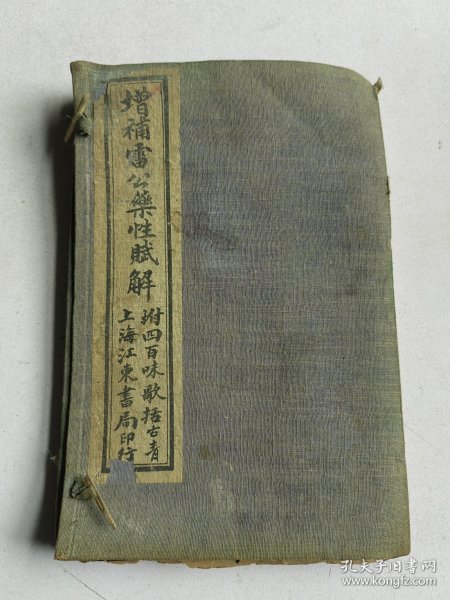 增補雷公藥性賦解
坿四百味歌括古青
上海江東書局印行
孔夫子旧书网
www.kongfz.com